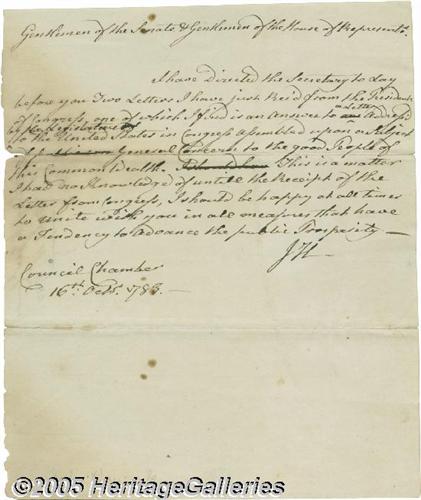 Gentlemen of the Senate & Gentlemen of the House of Represent.s
I have Directed the Secretary to Lay
before you Two Letters I have just Rec'd from the President
of Congress, one of which I find is an Answer to a Letter Address'd
by the Legislature
to the United States in Congress Assembled upon a Subject
of General Concern to the good People of
this Common Wealth. This is a matter
I had no Knowledge of until the Receipt of the
Letter from Congress, I should be happy at all times
to Unite with you in all measures that have
a Tendency to Advance the publick Prosperity —
J H —
Council Chamber
16th Octr. 1783. —
©2005 HeritageGalleries